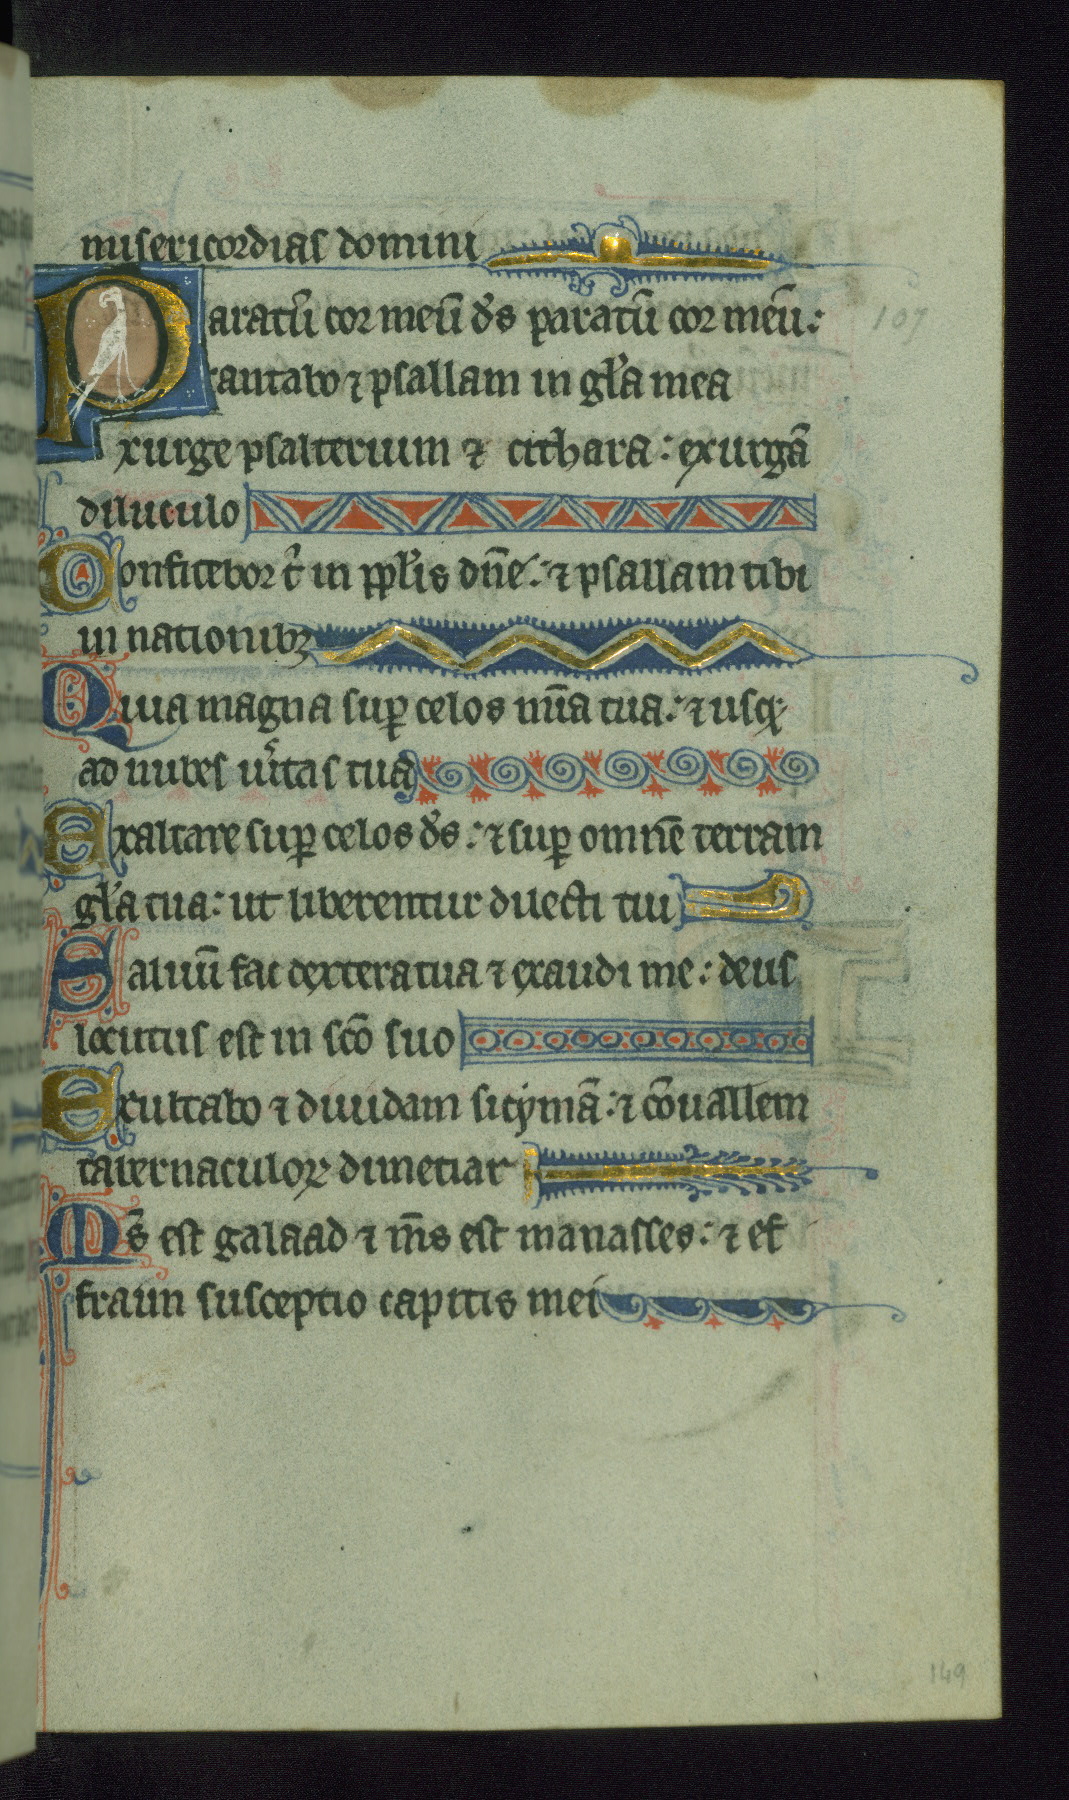 misericordias domini
Paratū cor meū d̄s paratū cor meū: 107
cantabo ⁊ psallam in gl̄a mea
xurge psalterium ⁊ cithara: exurgā
diluculo
Confitebor t̄ in pp̄lis dn̄e: ⁊ psallam tibi
in nationibꝫ
Quia magna suꝑ celos mīa tua: ⁊ usqꝫ
ad nubes ūitas tua
Exaltare suꝑ celos d̄s: ⁊ suꝑ omnē terram
gl̄a tua: ut liberentur dilecti tui
Saluū fac dextera tua ⁊ exaudi me: deus
locutus est in sc̄o suo
Exultabo ⁊ diuidam sicymā: ⁊ cōuallem
tabernaculoꝝ dimetiar
Ms̄ est galaad ⁊ m̄s est manasses: ⁊ ef
fraim susceptio capitis mei
149